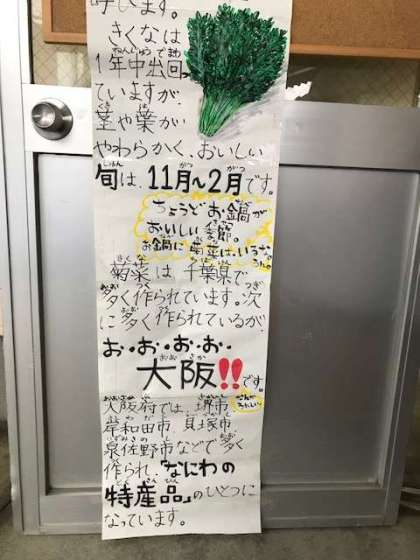 呼びます。
きくなは
1年中出回っ
ていますが、
茎や葉が
やわらかく、おいしい
旬は、11月〜2月です。
ちょうどお鍋が
おいしい季節。
お鍋に菊菜はいるな。
菊菜は千葉県で
多く作られています。次
に多く作られているが
お・お・お・お・
大阪!!です。
大阪府では、堺市
岸和田市 貝塚市
泉佐野市などで多く
作られ、「なにわの
特産品」のひとつに
なっています。